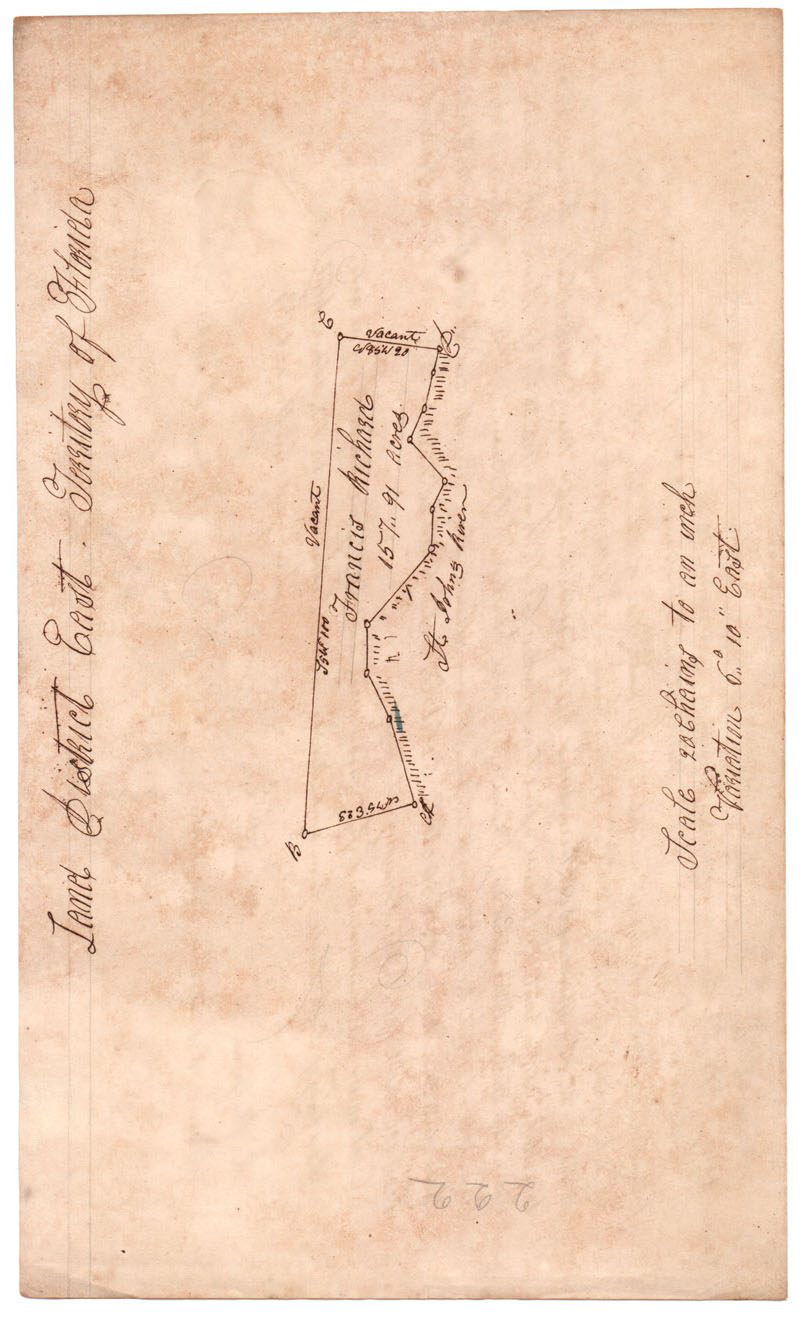 Land District East. Territory of Florida
Vacant
Vacant
N 85 W 20
Francis Richard
157.. 91 Acres.
N 75 E 23
B
A
St. Johns River
Scale 20 Chains to an inch
Variation 6..° 10" East.
222